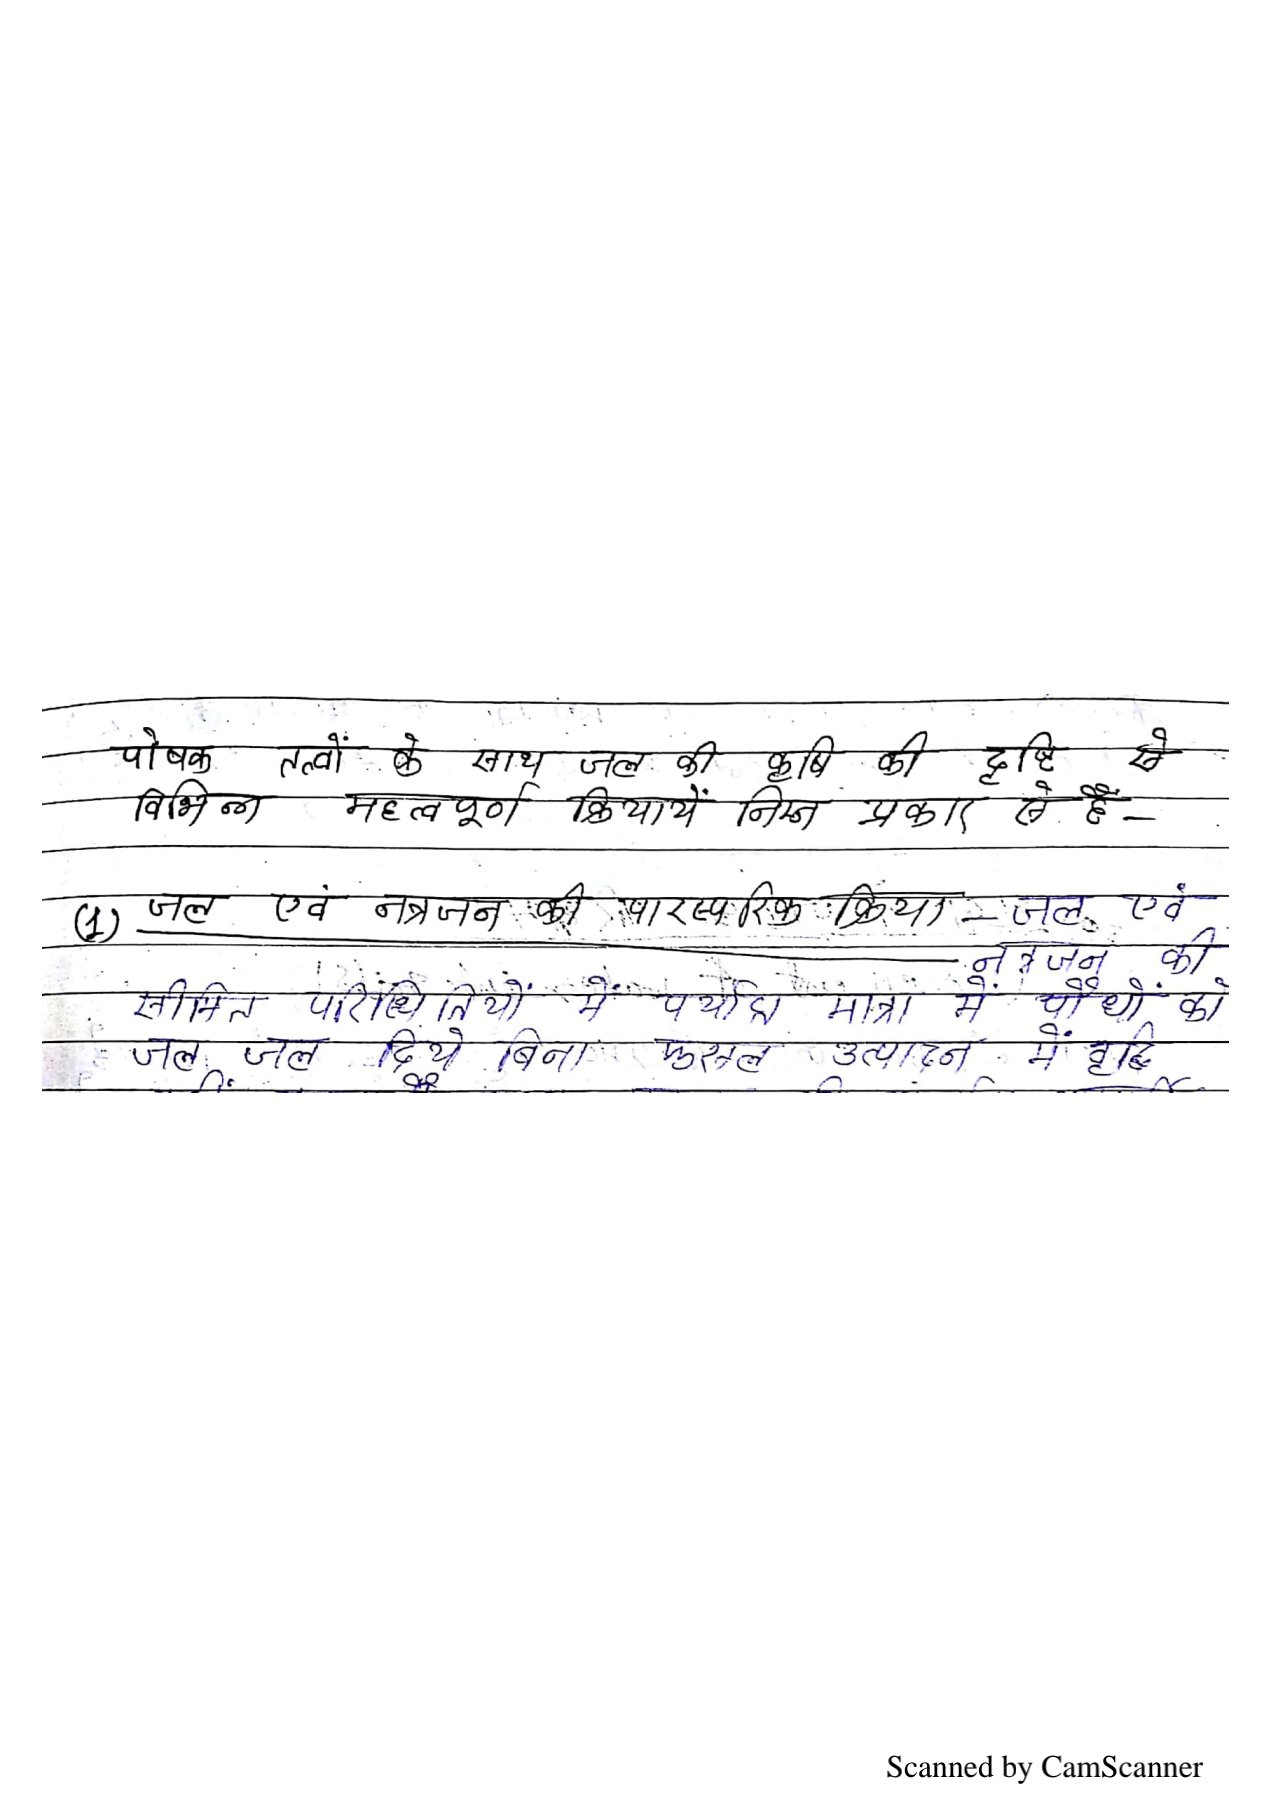 पोषक तत्वों के साथ जल की कृषि की दृष्टि से
विभिन्न महत्वपूर्ण क्रियायें निम्न प्रकार से हैं-
(1) जल एवं नत्रजन की पारस्परिक क्रिया - जल एवं
नत्रजन की
सीमित परिस्थितियों में पर्याप्त मात्रा में पौधों को
जल जल दिये बिना फसल उत्पादन में वृद्धि
Scanned by CamScanner